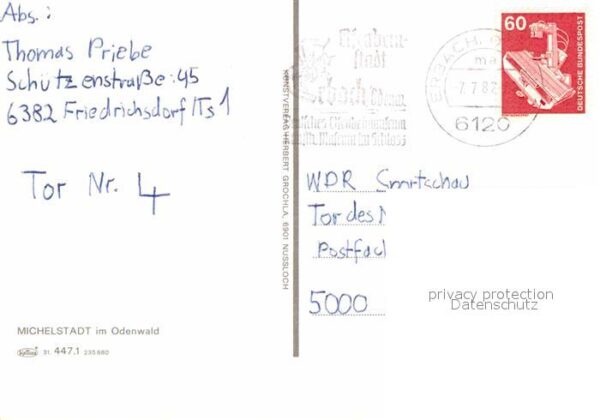 Abs.:
Thomas Priebe
Schützenstraße 45
6382 Friedrichsdorf/Ts 1
Tor Nr. 4
MICHELSTADT im Odenwald
31. 447.1 235 680
KUNSTVERLAG HERBERT GROCHLA, 6901 NUSSLOCH
Elfenbein-
stadt
Erbach Odenw.
Deutsches Elfenbeinmuseum
Museum im Schloss
ERBACH
7.7.82
6120
60
DEUTSCHE BUNDESPOST
WDR Sportschau
Tor des M
Postfach
5000
privacy protection
Datenschutz